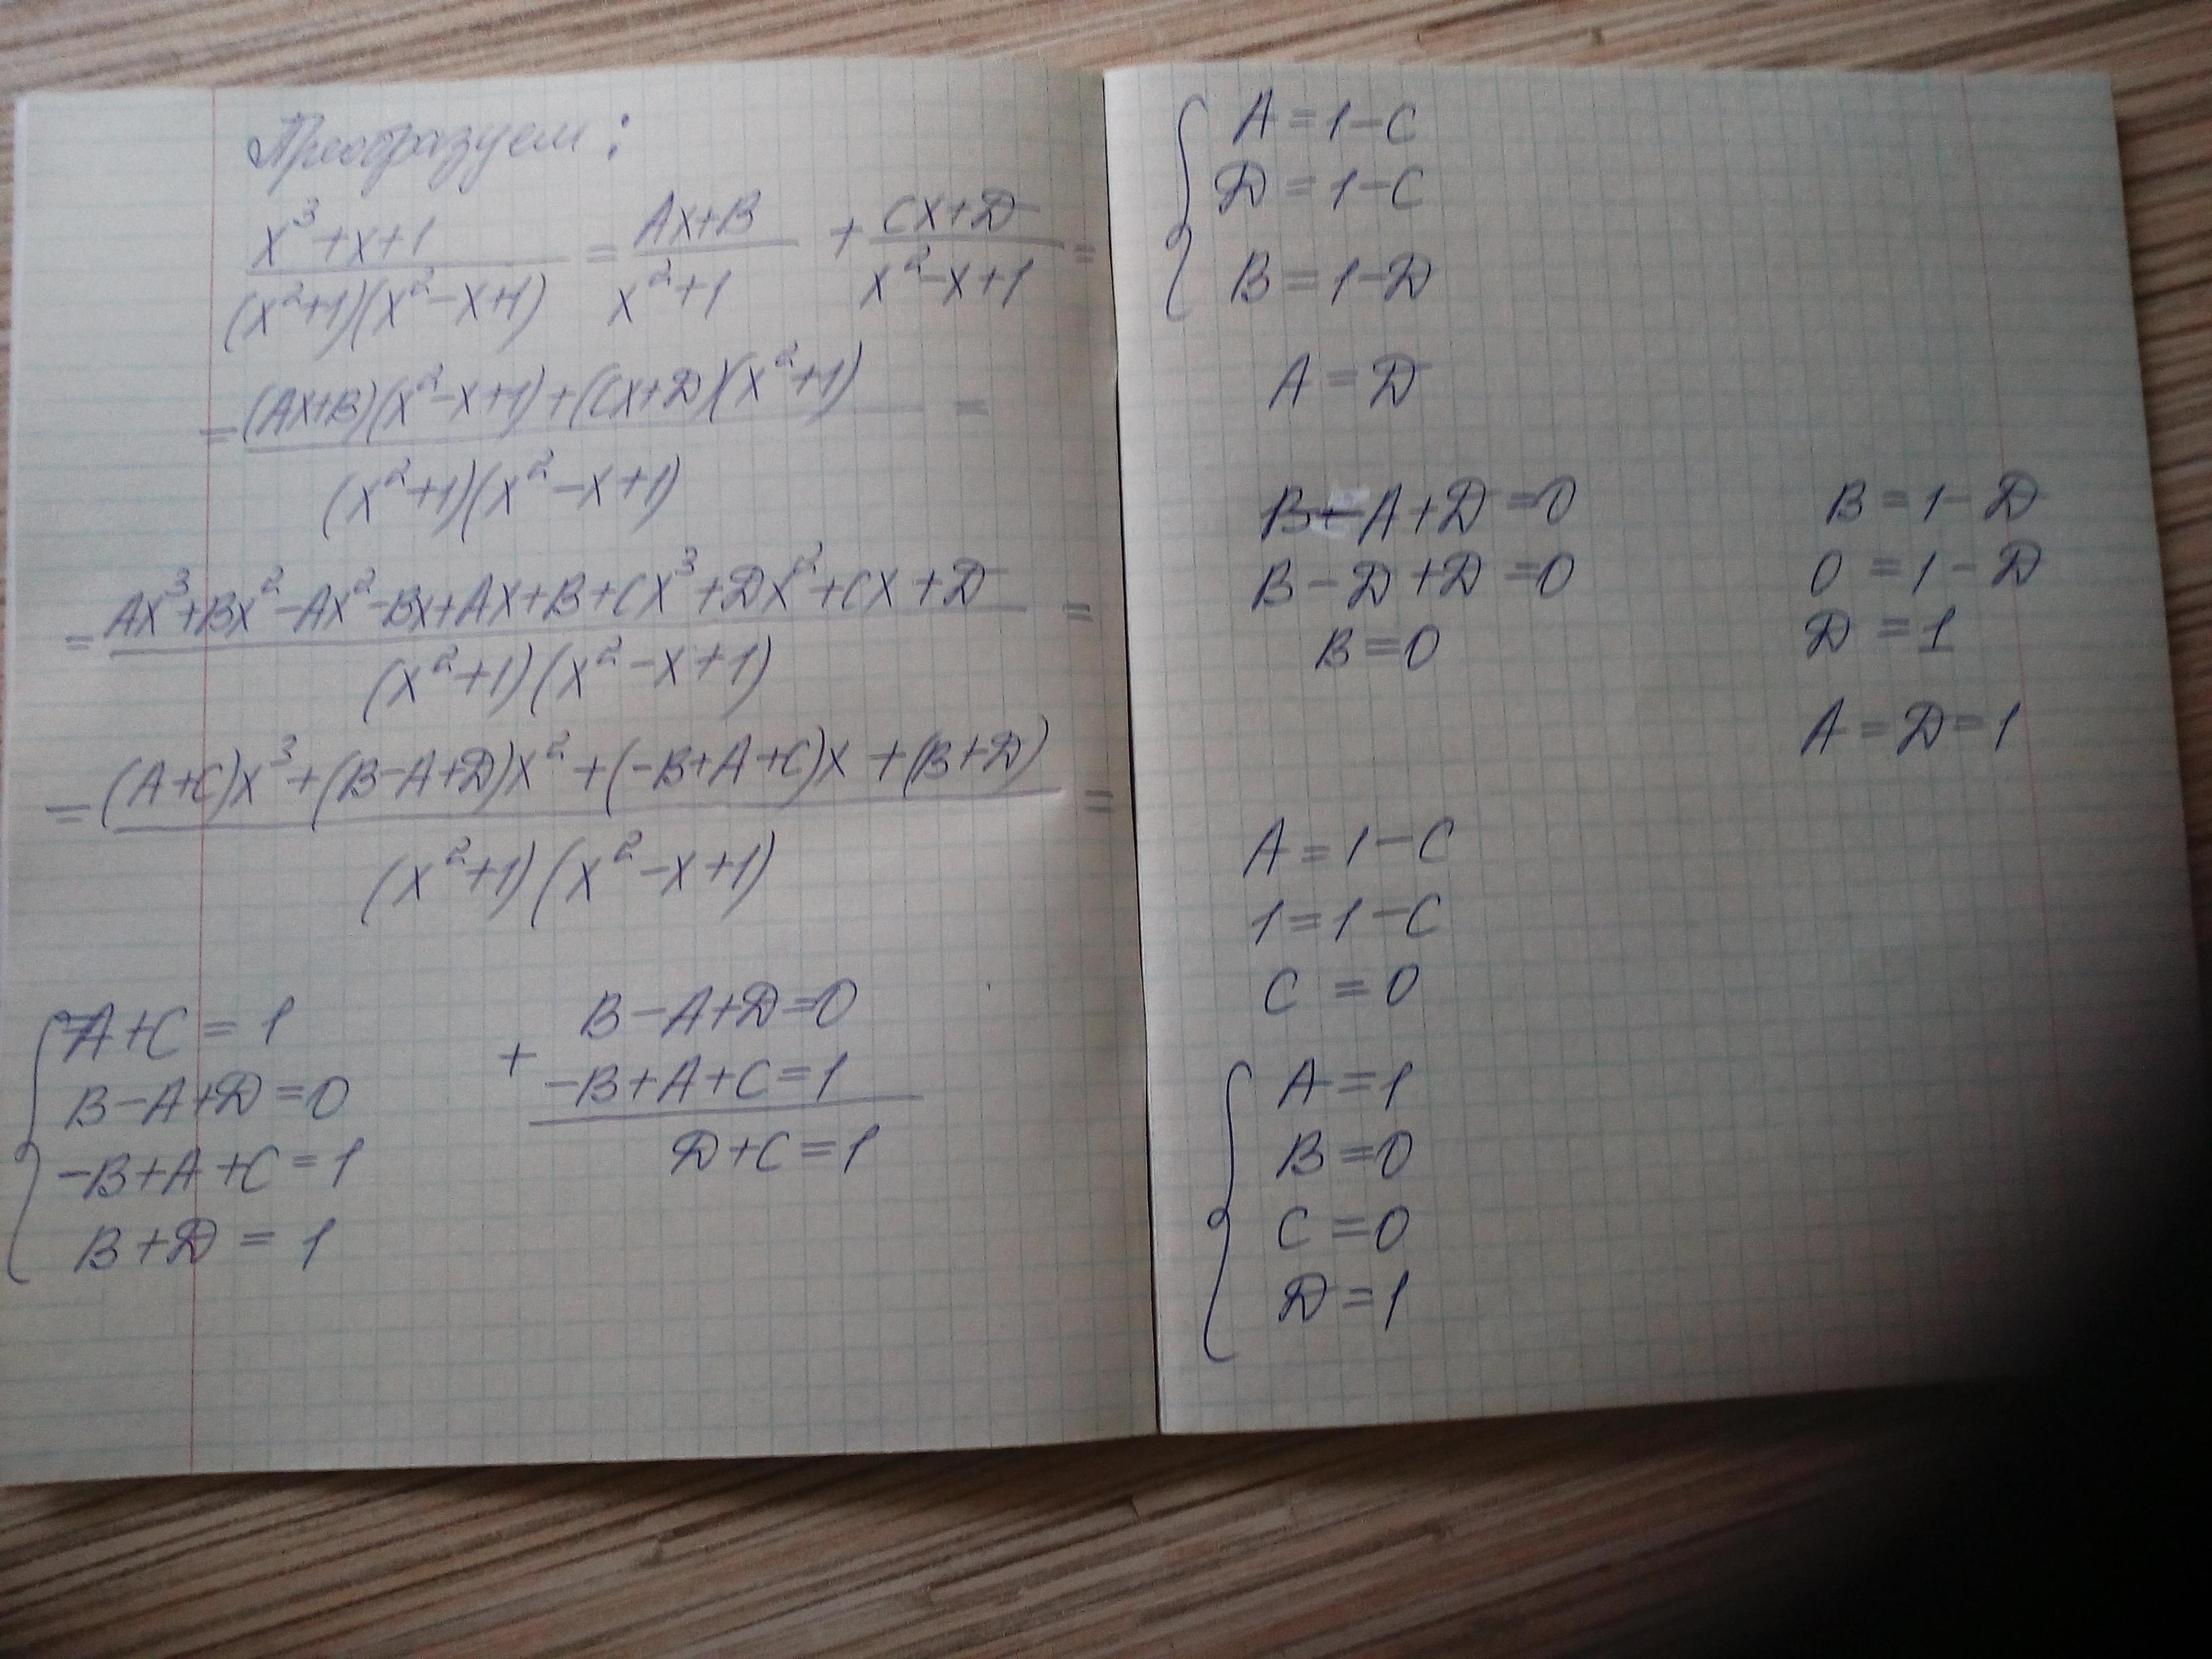 Преобразуем:
x³+x+1/(x²+1)(x²-x+1) = Ax+B/x²+1 + Cx+D/x²-x+1 =
= (Ax+B)(x²-x+1)+(Cx+D)(x²+1)/(x²+1)(x²-x+1) =
= Ax³+Bx²-Ax²-Bx+Ax+B+Cx³+Dx²+Cx+D/(x²+1)(x²-x+1) =
= (A+C)x³+(B-A+D)x²+(-B+A+C)x+(B+D)/(x²+1)(x²-x+1) =
A+C=1
B-A+D=0
-B+A+C=1
B+D=1
B-A+D=0
+
-B+A+C=1
D+C=1
A=1-C
D=1-C
B=1-D
A=D
B-A+D=0
B-D+D=0
B=0
B=1-D
0=1-D
D=1
A=D=1
A=1-C
1=1-C
C=0
A=1
B=0
C=0
D=1